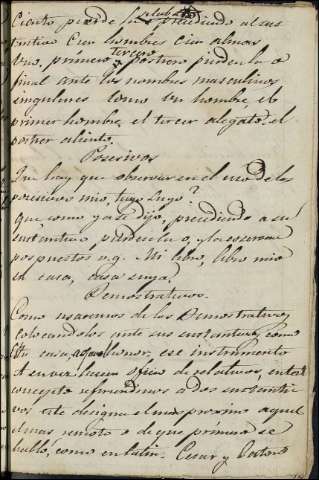 Ciento pierde la sílaba to precediendo al sus
tantivo Cien hombres Cien almas
Uno, primero tercero y postrero pierden la o
final ante los nombres masculinos
singulares como Un hombre, el
primer hombre, el tercer alegato, el
postrer aliento.
Posesivos
Que hay que observar en el uso de los
posesivos mio, tuyo suyo?
que como ya se dijo, precediendo a su
sustantivo pierden la o, y la conservan
pospuestos v.g. Mi libro, libro mio
su casa, casa suya.
Demostrativos.
Como usaremos de los Demostrativos,
colocandolos ante sus sustantivos, como
esta casa, aquel honor, ese instrumento
A en vez hacen oficio de relativos, en tal
concepto refiriendonos a dos sustanti
vos este designa el mas proximo aquel
el mas remoto o de que primero se
habló, como en latin. Cesar y